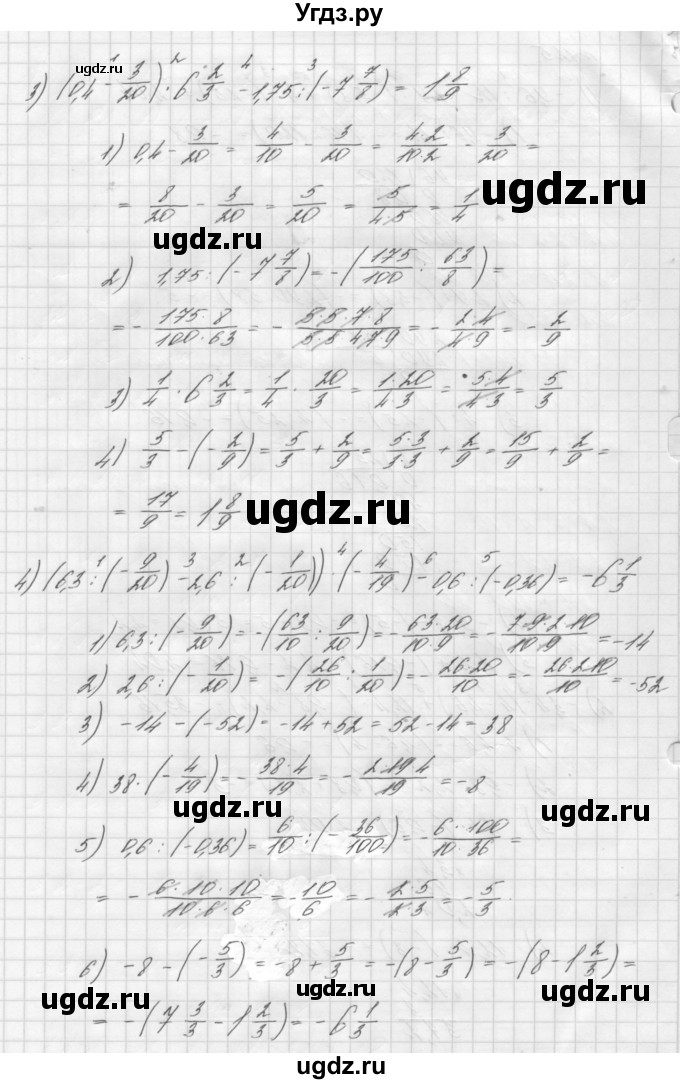 Угдз.ру
угдз.ру
3) (0,4 - 3/20) · 6 2/3 - 1,75 : (-7 7/8) = 1 8/9
1) 0,4 - 3/20 = 4/10 - 3/20 = 4·2/10·2 - 3/20 =
= 8/20 - 3/20 = 5/20 = 5/4·5 = 1/4
ugdz.ru
ugdz.ru
2) 1,75 : (-7 7/8) = -(175/100 : 63/8) =
= - 175·8/100·63 = - 5·5·7·8/5·5·4·7·9 = - 2·4/4·9 = - 2/9
3) 1/4 · 6 2/3 = 1/4 · 20/3 = 1·20/4·3 = 5·4/4·3 = 5/3
ugdz.ru
ugdz.ru
4) 5/3 - (-2/9) = 5/3 + 2/9 = 5·3/3·3 + 2/9 = 15/9 + 2/9 =
= 17/9 = 1 8/9
ugdz.ru
4) (6,3 : (-9/20) - 2,6 : (-1/20)) · (-4/19) - 0,6 : (-0,36) = -6 1/3
1) 6,3 : (-9/20) = -(63/10 : 9/20) = - 63·20/10·9 = - 7·9·2·10/10·9 = -14
2) 2,6 : (-1/20) = -(26/10 : 1/20) = - 26·20/10 = - 26·2·10/10 = -52
3) -14 - (-52) = -14 + 52 = 52 - 14 = 38
4) 38 · (-4/19) = - 38·4/19 = - 2·19·4/19 = -8
ugdz.ru
ugdz.ru
5) 0,6 : (-0,36) = 6/10 : (-36/100) = - 6·100/10·36 =
= - 6·10·10/10·6·6 = - 10/6 = - 2·5/2·3 = - 5/3
6) -8 - (-5/3) = -8 + 5/3 = -(8 - 5/3) = -(8 - 1 2/3) =
ugdz.ru
ugdz.ru
ugdz.ru
= -(7 3/3 - 1 2/3) = -6 1/3
ugdz.ru